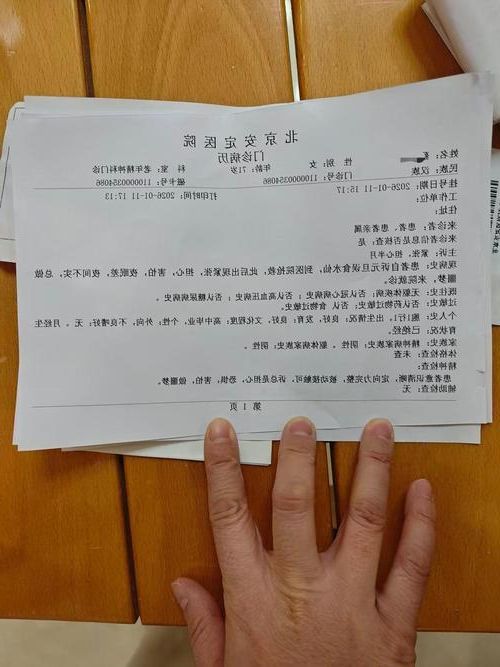 北京安定医院
门诊病历
姓名： 性 别：女 年龄：71岁 科 室：老年精神科门诊
民族：汉族 门诊号：110000354086 磁卡号：110000354086
挂号日期：2026-01-11 15:17 打印时间：2026-01-11 17:13
工作单位：
住址：
来诊者：患者、患者亲属
来诊者信息是否核查：是
主诉：紧张、担心半月
现病史：患者自诉元旦误食水仙，到医院抢救，此后出现紧张，担心，害怕，夜眠差，夜间不实，总做
噩梦，来院就诊。
既往史：无躯体疾病；否认冠心病病史；否认高血压病史；否认糖尿病病史。
过敏史：否认药物过敏史；否认 食物过敏史。
个人史：胞1行1，出生情况：良好，发育：良好，文化程度：高中毕业，个性：外向，不良嗜好：无。月经生
育状况：已绝经。
家族史：精神病家族史：阴性。躯体病家族史：阴性。
体格检查：未查
精神检查：
患者意识清晰，定向力完整，被动接触可，诉总是担心，恐惧，害怕，做噩梦。
辅助检查：无
第 1 页